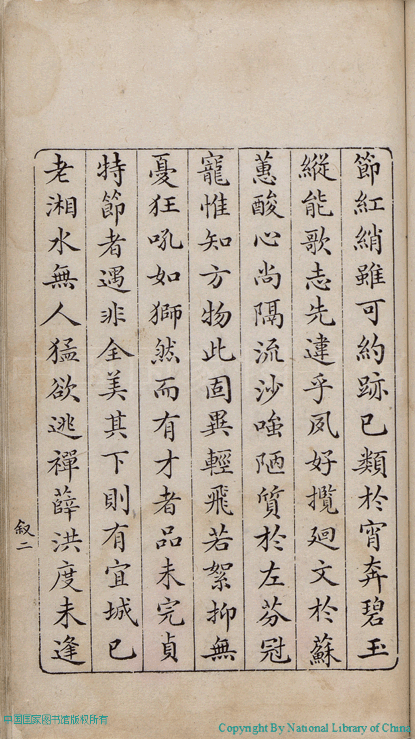 節紅綃雖可約跡已類於宵奔碧玉
縱能歌志先違乎夙好攬廻文於蘇
蕙酸心尚隔流沙嗤陋質於左芬冠
寵惟知方物此固異輕飛若絮抑無
憂狂吼如獅然而有才者品未完貞
特節者遇非全美其下則有宜城已
老湘水無人猛欲逃禪薛洪度未逢
叙二
中国国家图书馆版权所有
Copyright By National Library of China